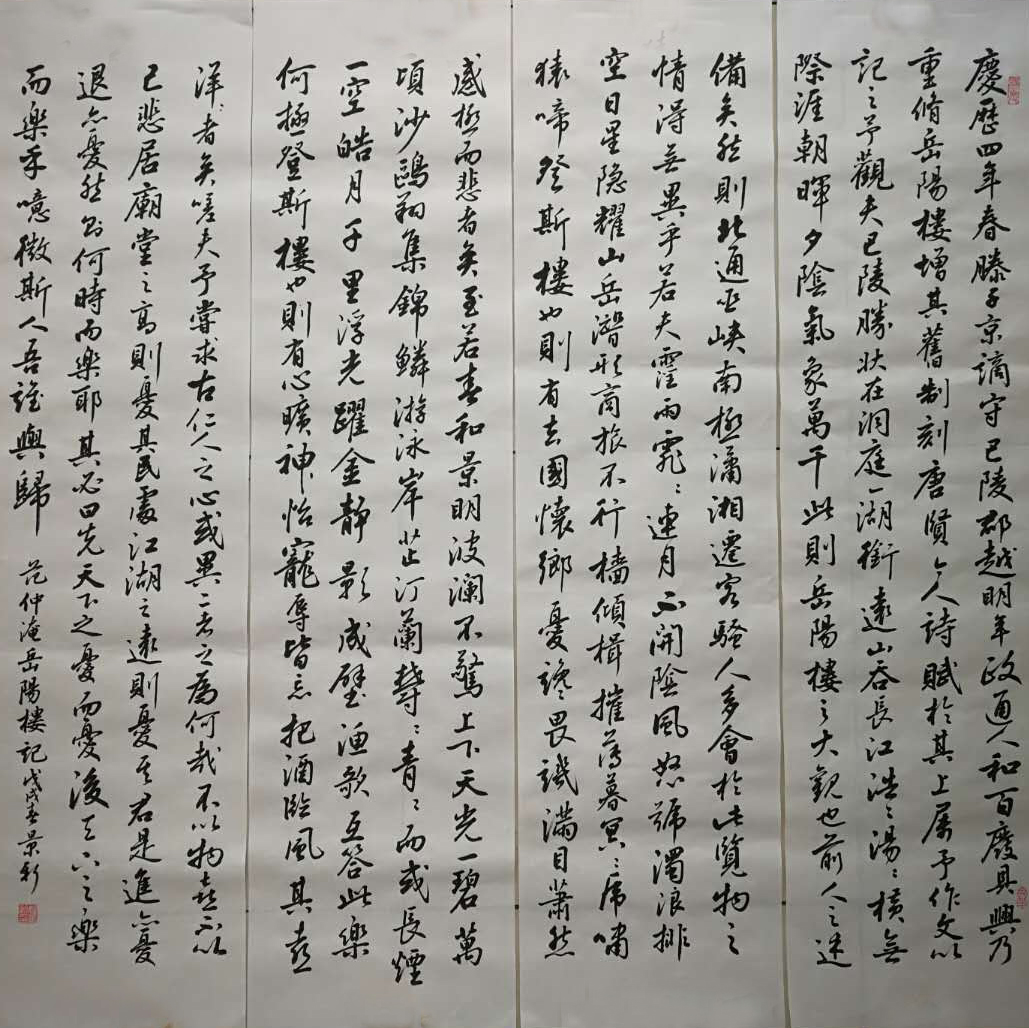 慶歷四年春滕子京謫守巴陵郡越明年政通人和百廢具興乃
重脩岳陽樓增其舊制刻唐賢今人詩賦於其上屬予作文以
記之予觀夫巴陵勝狀在洞庭一湖銜遠山吞長江浩〻湯〻橫無
際涯朝暉夕陰氣象萬千此則岳陽樓之大觀也前人之述
備矣然則北通巫峽南極瀟湘遷客騷人多會於此覽物之
情得無異乎若夫霪雨霏〻連月不開陰風怒號濁浪排
空日星隐耀山岳潛形商旅不行檣傾楫摧薄暮冥〻虎嘯
猿啼登斯樓也則有去國懷鄉憂讒畏譏滿目蕭然
感極而悲者矣至若春和景明波瀾不驚上下天光一碧萬
頃沙鷗翔集錦鱗游泳岸芷汀蘭鬱〻青〻而或長煙
一空皓月千里浮光躍金靜影成璧漁歌互答此樂
何極登斯樓也則有心曠神怡寵辱皆忘把酒臨風其喜
洋〻者矣嗟夫予嘗求古仁人之心或異二者之為何哉不以物喜不以
己悲居廟堂之高則憂其民處江湖之遠則憂其君是進亦憂
退亦憂然則何時而樂耶其必曰先天下之憂而憂後天下之樂
而樂乎噫微斯人吾誰與歸 范仲淹岳陽樓記戊戌春景新